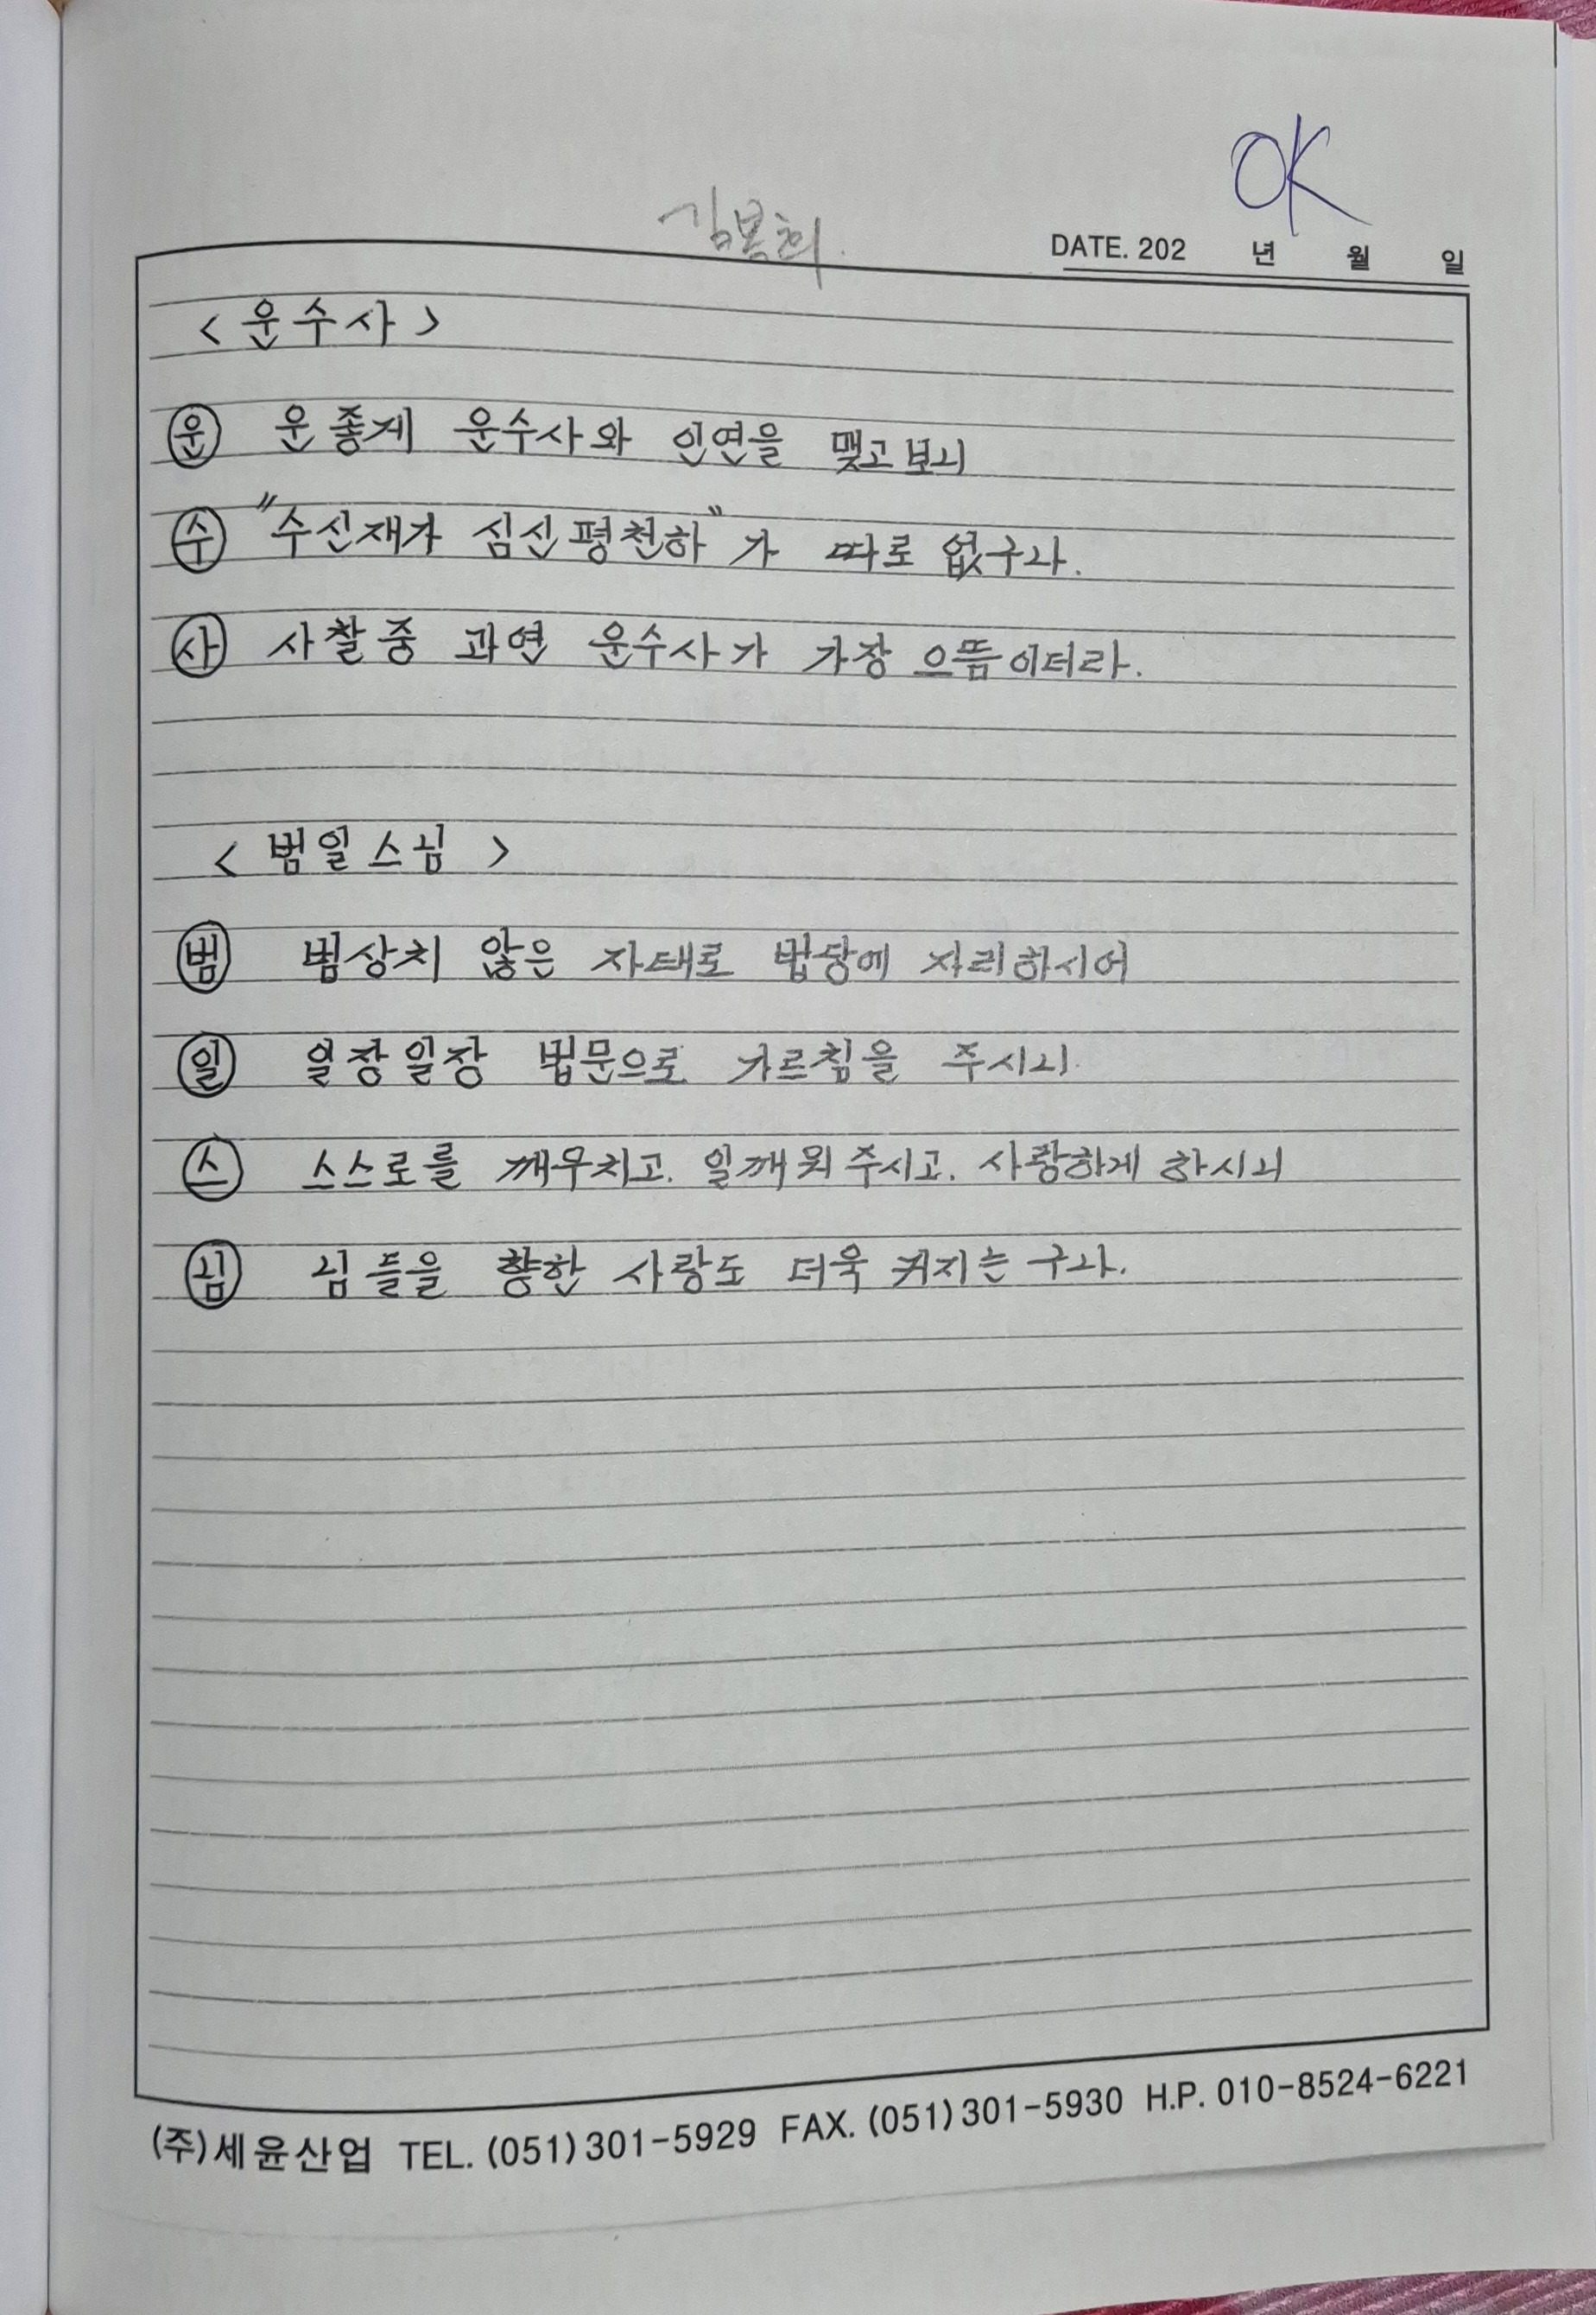 OK
김복희.
DATE. 202 년 월 일
< 운수사 >
운 운좋게 운수사와 인연을 맺고보니
수 "수신재가 심신평천하"가 따로 없구나.
사 사찰중 과연 운수사가 가장 으뜸이더라.
< 범일스님 >
범 범상치 않은 자태로 법당에 자리하시어
일 일장일장 법문으로 가르침을 주시니
스 스스로를 깨우치고. 일깨워주시고. 사랑하게 하시니
님 님들을 향한 사랑도 더욱 커지는구나.
(주)세윤산업 TEL. (051)301-5929 FAX. (051)301-5930 H.P. 010-8524-6221